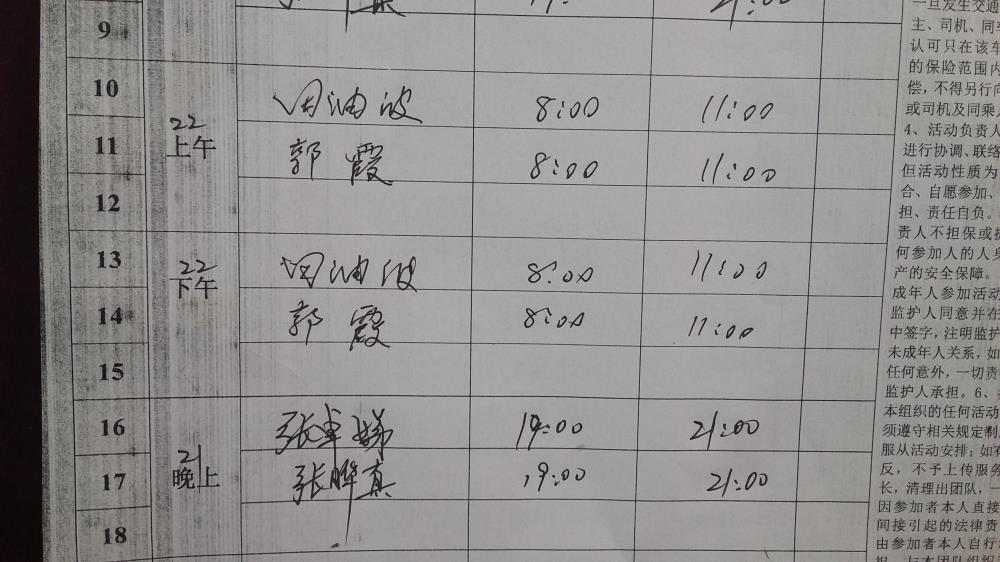 9 19:00 21:00
10 周油波 8:00 11:00
22
上午
11 郭霞 8:00 11:00
12
13 周油波 8:00 11:00
22
下午
14 郭霞 8:00 11:00
15
16 张卓娣 19:00 21:00
21
晚上
17 张晔真 19:00 21:00
18
一旦发生交通
主、司机、同车
认可只在该车
的保险范围内
偿，不得另行向
或司机及同乘
4、活动负责人
进行协调、联络
但活动性质为
合、自愿参加、
担、责任自负。
责人不担保或
何参加人的人身
产的安全保障。
成年人参加活动
监护人同意并在
中签字，注明监护
未成年人关系，如
任何意外，一切责
监护人承担。6、
本组织的任何活动
须遵守相关规定制
服从活动安排；如有
反，不予上传服务
长，清理出团队，一
因参加者本人直接
间接引起的法律责
由参加者本人自行